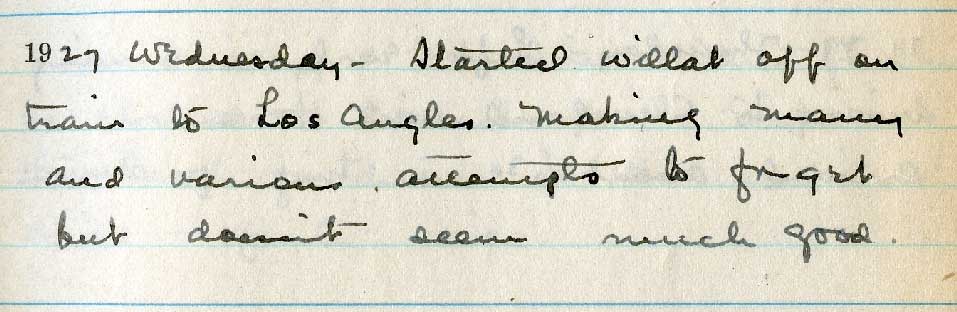 1927 Wednesday - Started Willat off on
train to Los Angles. Making many
and various attempts to forget
but doesn't seem much good.